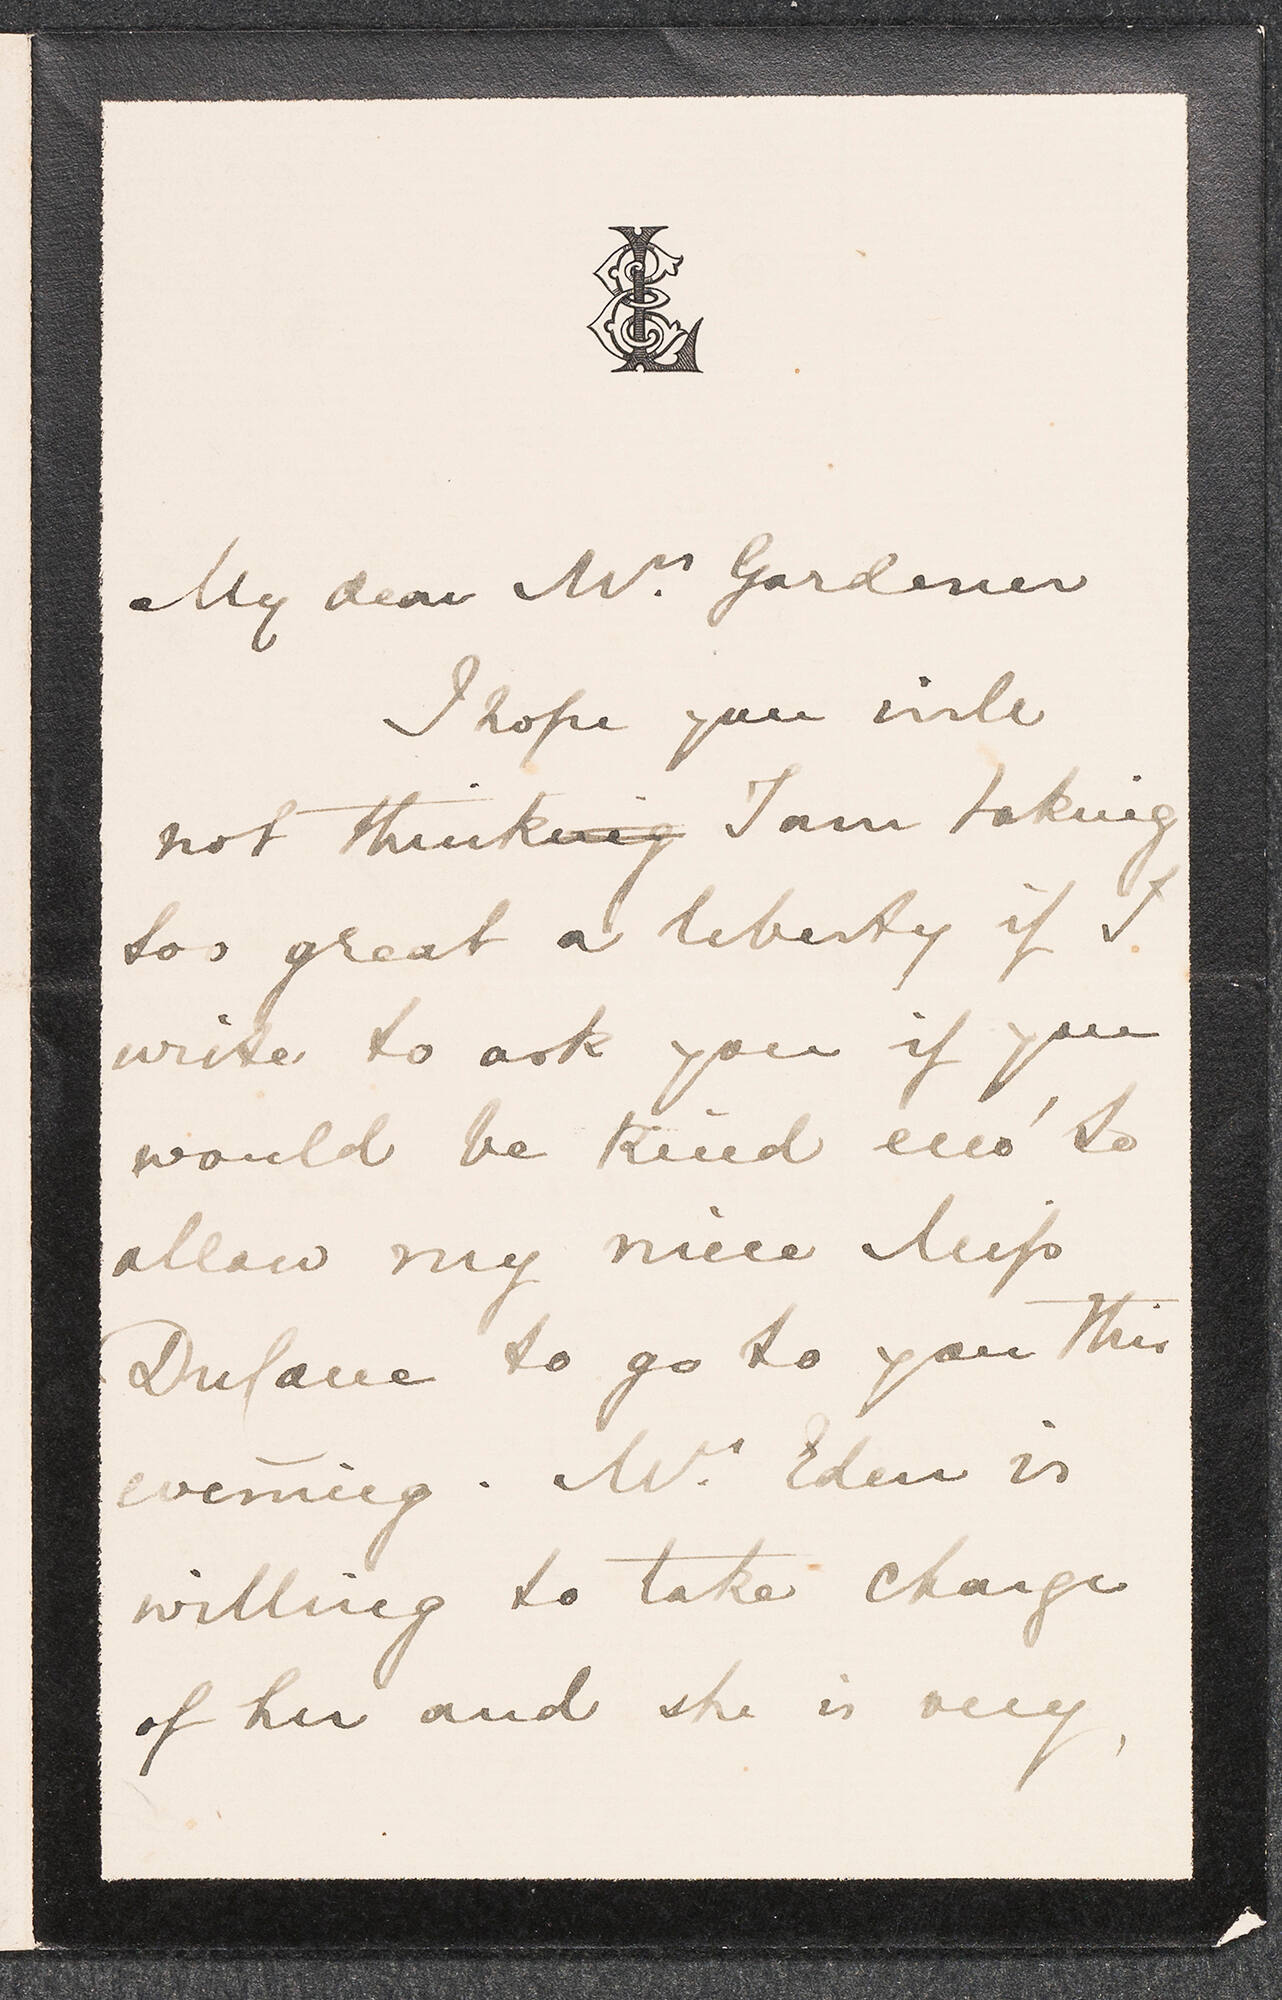 My dear Mrs. Gardener
I hope you will
not thinking I am taking
too great a liberty if I
write to ask you if you
would be kind eno' to
allow my niece Miss
Dulane to go to you this
evening. Mrs. Eden is
willing to take charge
of her and she is very,